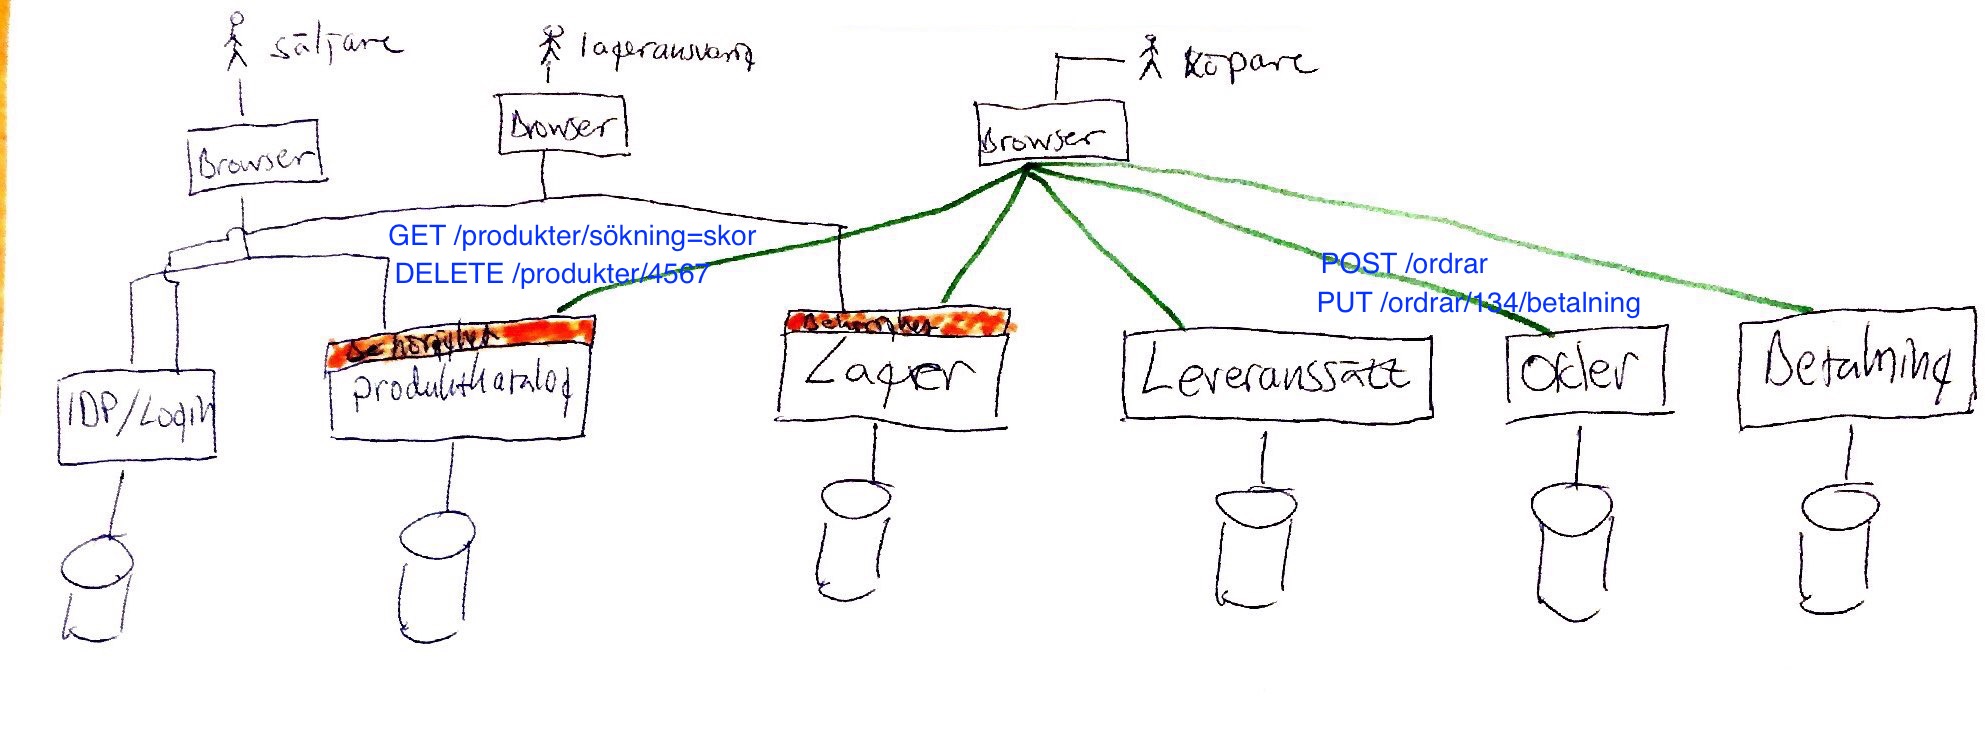 säljare
lageransvarig
köpare
Browser
Browser
Browser
GET /produkter/sökning=skor
DELETE /produkter/4567
POST /ordrar
PUT /ordrar/134/betalning
Behörighet
Behörighet
IDP/Login
produktkatalog
Lager
Leveranssätt
Order
Betalning